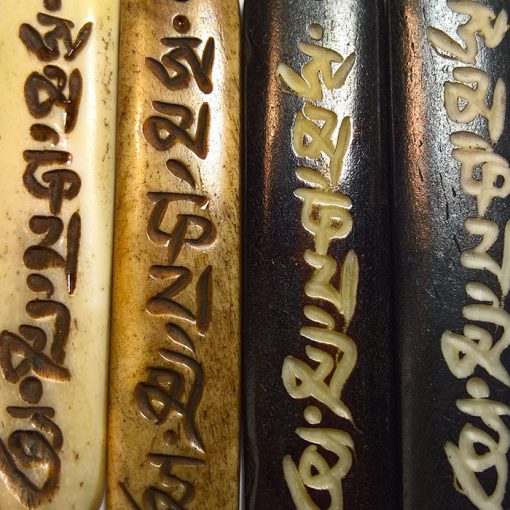 ཨོཾ་མ་ཎི་པདྨེ་ཧཱུྃ
ཨོཾ་མ་ཎི་པདྨེ་ཧཱུྃ
ཨོཾ་མ་ཎི་པདྨེ་ཧཱུྃ
ཨོཾ་མ་ཎི་པདྨེ་ཧཱུྃ